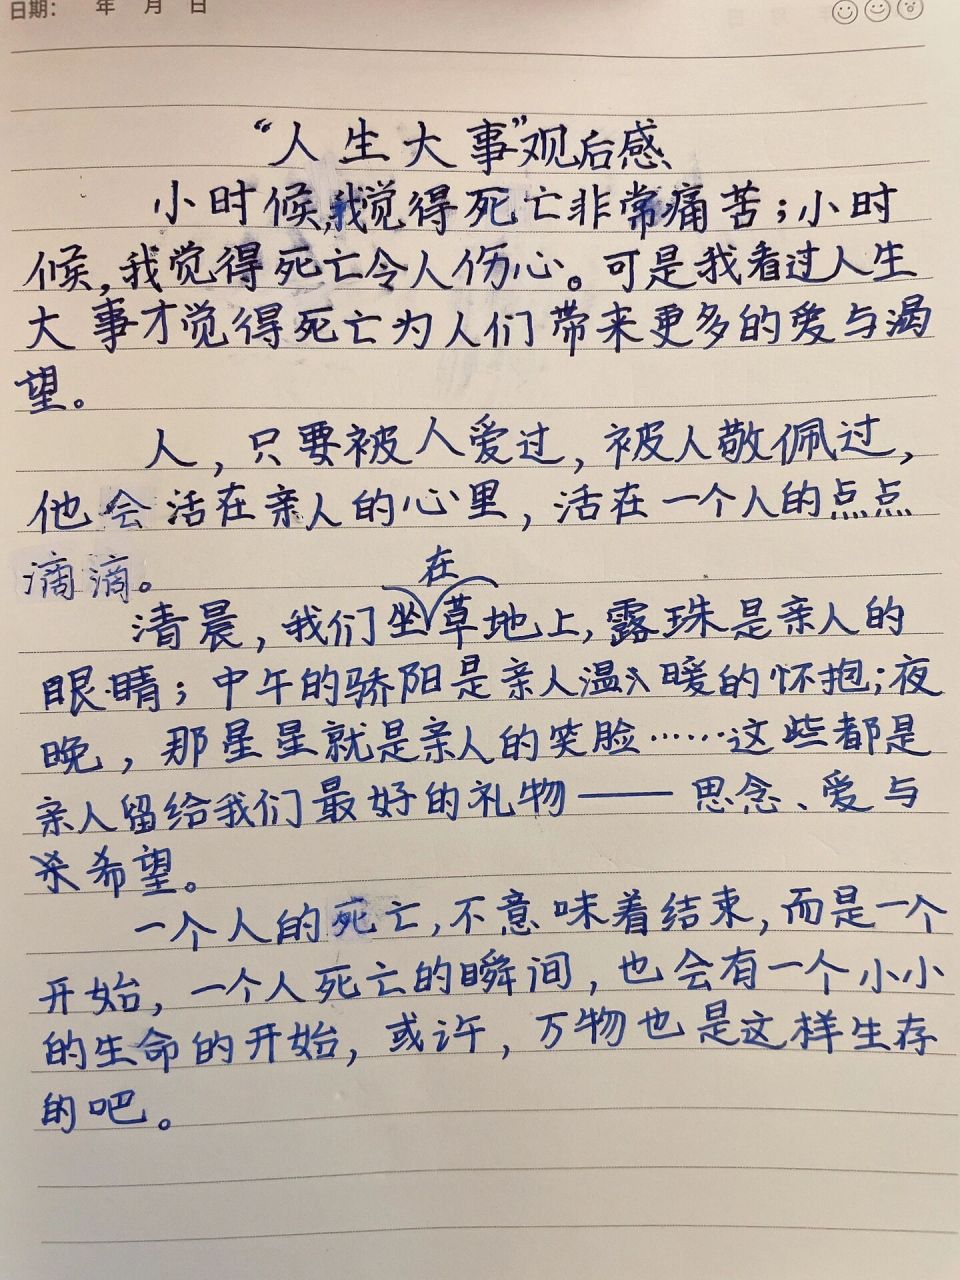 日期： 年 月 日
“人生大事”观后感
小时候,我觉得死亡非常痛苦；小时
候,我觉得死亡令人伤心。可是我看过人生
大事才觉得死亡为人们带来更多的爱与渴
望。
人，只要被人爱过，被人敬佩过，
他会活在亲人的心里，活在一个人的点点
滴滴。
清晨，我们坐在草地上,露珠是亲人的
眼睛；中午的骄阳是亲人温暖的怀抱;夜
晚，那星星就是亲人的笑脸……这些都是
亲人留给我们最好的礼物——思念、爱与
希望。
一个人的死亡,不意味着结束,而是一个
开始，一个人死亡的瞬间，也会有一个小小
的生命的开始，或许，万物也是这样生存
的吧。